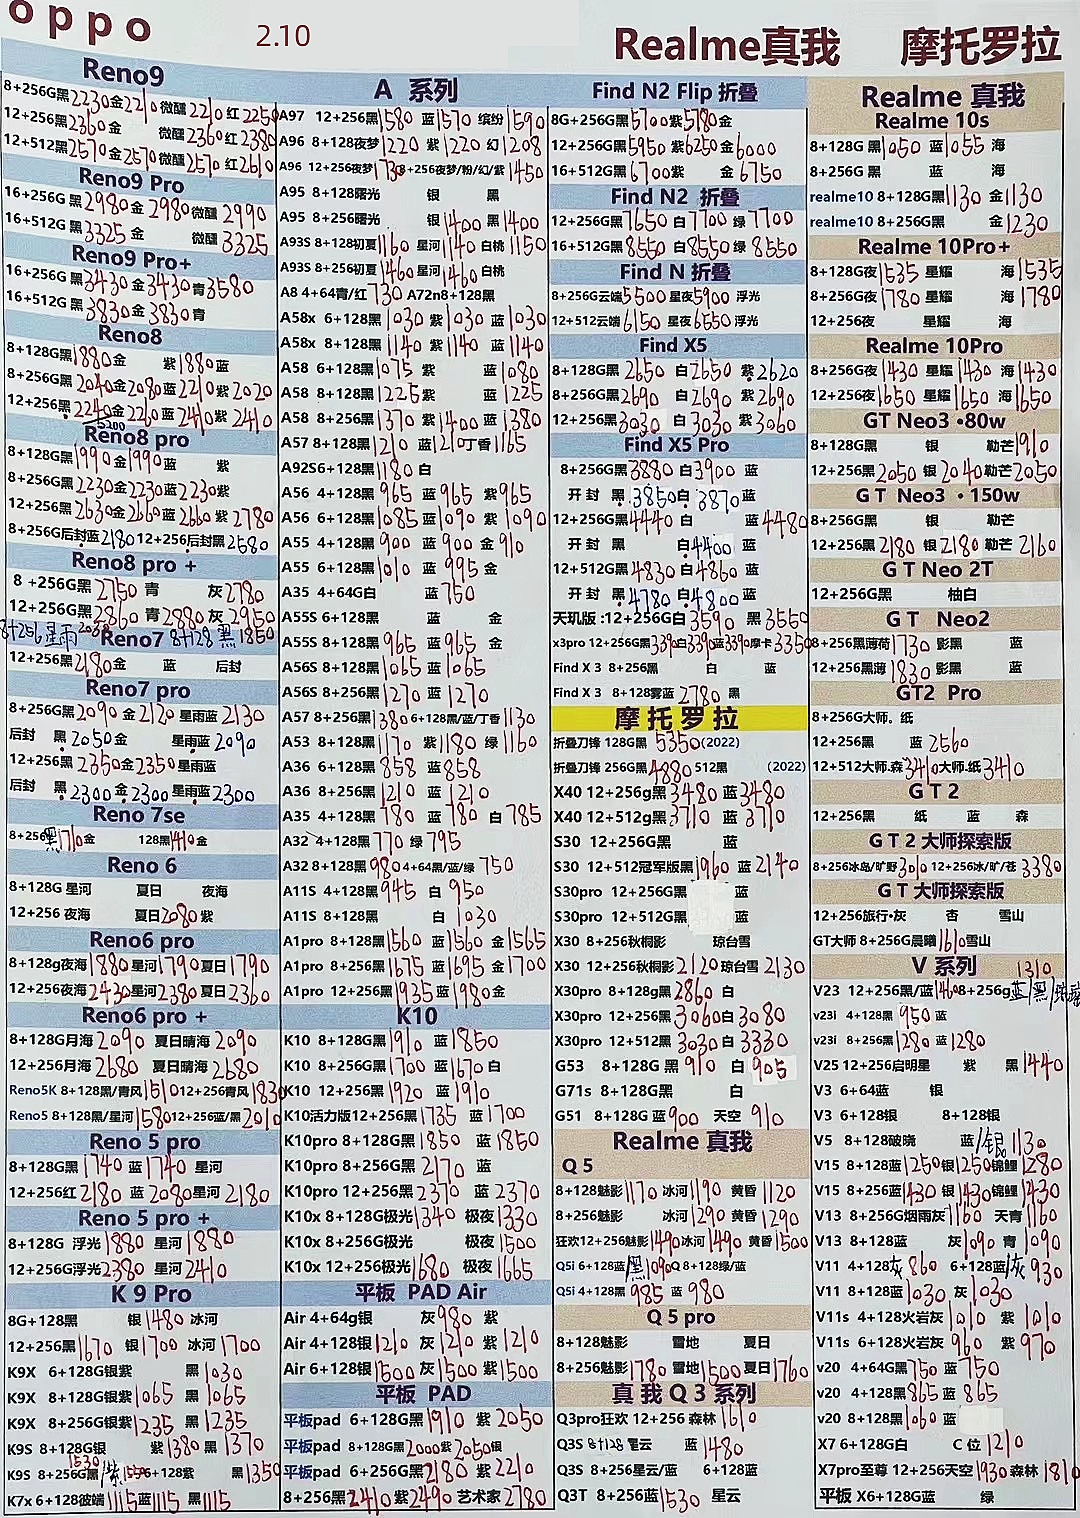 oppo
2.10
Realme真我
摩托罗拉
Reno9
8+256G黑2230金2210微醺2210红2250
12+256黑2360金 微醺2360红2380
12+512黑2570金2570微醺2570红2610
Reno9 Pro
16+256G黑2980金2980微醺2990
16+512G黑3325金 微醺3325
Reno9 Pro+
16+256G黑3430金3430青3580
16+512G黑3830金3830青
Reno8
8+128G黑1880金 紫1880蓝
8+256G黑2040金2080蓝2210紫2020
12+256黑2240金2260蓝2410紫2410
Reno8 pro
8+128G黑1990金1990蓝 紫
8+256G黑2230金2230蓝2230紫
12+256黑2630金2660蓝2660紫2780
8+256G后封蓝2180 12+256后封黑2580
Reno8 pro +
8 +256G黑2750青 灰2780
12+256G黑2860青2880灰2950
8+256星雨 Reno7 8+128黑1850
12+256黑2180金 蓝 后封
Reno7 pro
8+256G黑2090金2120星雨蓝2130
后封 黑2050金 星雨蓝2090
12+256黑2350金2350星雨蓝
后封 黑2300金2300星雨蓝2300
Reno 7se
8+256黑1710金 128黑1410金
Reno 6
8+128G 星河 夏日 夜海
12+256 夜海 夏日2080紫
Reno6 pro
8+128g夜海1880星河1790夏日1790
12+256夜海2430星河2380夏日2360
Reno6 pro +
8+128G月海2090 夏日晴海2090
12+256月海2680 夏日晴海2680
Reno5K 8+128黑/青风1510 12+256青风1830
Reno5 8+128黑/星河1580 12+256蓝/黑2010
Reno 5 pro
8+128G黑1740蓝1740星河
12+256红2180蓝2080星河2180
Reno 5 pro +
8+128G 浮光1880星河1880
12+256G浮光2380星河2410
K 9 Pro
8G+128黑 银1480冰河
12+256黑1670银1700冰河1700
K9X 6+128G银紫 黑1030
K9X 8+128G银紫1065黑1065
K9X 8+256G银紫1235黑1235
K9S 8+128G银 紫1380黑1370
K9S 8+256G黑/紫1530 6+128紫 黑1350
K7x 6+128彼端1115蓝1115黑1115
A 系列
A97 12+256黑1580蓝1570缤纷1590
A96 8+128夜梦1220紫1220幻1208
A96 12+256夜梦1730 8+256夜梦/粉/幻/紫1450
A95 8+128曙光 银 黑
A95 8+256曙光 银1400黑1400
A93S 8+128初夏1160星河1140白桃1150
A93S 8+256初夏1460星河1460白桃
A8 4+64青/红730 A72n8+128黑
A58x 6+128黑1030紫1030蓝1030
A58x 8+128黑1140紫1140蓝1140
A58 6+128黑1075紫 蓝1080
A58 8+128黑1225紫 蓝1225
A58 8+256黑1370紫1400蓝1380
A57 8+128黑1210蓝1210丁香1165
A92S6+128黑1180白
A56 4+128黑965蓝965紫965
A56 6+128黑1085蓝1090紫1090
A55 4+128黑900蓝900金910
A55 6+128黑1010蓝995金
A35 4+64G白 蓝750
A55S 6+128黑 蓝 金
A55S 8+128黑965蓝965金
A56S 8+128黑1065蓝1065
A56S 8+256黑1270蓝1270
A57 8+256黑1380 6+128黑/蓝/丁香1130
A53 8+128黑1170紫1180绿1160
A36 6+128黑858蓝858
A36 8+256黑1210蓝1210
A35 4+128黑780蓝780白785
A32 4+128黑770绿795
A32 8+128黑980 4+64黑/蓝/绿750
A11S 4+128黑945白950
A11S 8+128黑 白1030
A1pro 8+128黑1560蓝1560金1565
A1pro 8+256黑1675蓝1695金1700
A1pro 12+256黑1935蓝1980金
K10
K10 8+128G黑1910蓝1850
K10 8+256G黑1700蓝1670白
K10 12+256黑1920蓝1910
K10活力版12+256黑1735蓝1700
K10pro 8+128G黑1850蓝1850
K10pro 8+256G黑2170蓝
K10pro 12+256黑2370蓝2370
K10x 8+128G极光1340极夜1330
K10x 8+256G极光 极夜1500
K10x 12+256极光1680极夜1665
平板 PAD Air
Air 4+64g银 灰980紫
Air 4+128银1210灰1210紫1210
Air 6+128银1500灰1500紫1500
平板 PAD
平板pad 6+128G黑1910紫2050
平板pad 8+128G黑2000紫2050银
平板pad 6+256G黑2180紫2210
8+256黑2410紫2490艺术家2780
Find N2 Flip 折叠
8G+256G黑5100紫5180金
12+256G黑5950紫6250金6000
16+512G黑6700紫 金6750
Find N2 折叠
12+256G黑7650白7700绿7700
16+512G黑8550白8550绿8550
Find N 折叠
8+256G云端5500星夜5900浮光
12+512云端6150星夜6550浮光
Find X5
8+128G黑2650白2650紫2620
8+256G黑2690白2690紫2690
12+256黑3030白3030紫3060
Find X5 Pro
8+256G黑3880白3900蓝
开封 黑3850白3870蓝
12+256G黑4440白 蓝4480
开封 黑 白4400蓝
12+512G黑4830白4860蓝
开封 黑4780白4800蓝
天玑版:12+256G白3590黑3550
x3pro 12+256G黑3390白3390蓝3390摩卡3350
Find X 3 8+256黑 白 蓝
Find X 3 8+128雾蓝2780黑
摩托罗拉
折叠刀锋 128G黑5350(2022)
折叠刀锋 256G黑4880 512黑 (2022)
X40 12+256g黑3480蓝3480
X40 12+512g黑3710蓝3710
S30 12+256G黑 蓝
S30 12+512冠军版黑1960蓝2140
S30pro 12+256G黑 蓝
S30pro 12+512G黑 蓝
X30 8+256秋桐影 琼台雪
X30 12+256秋桐影2120琼台雪2130
X30pro 8+128g黑2860白
X30pro 12+256黑3060白3080
X30pro 12+512黑3030白3330
G53 8+128G黑910白905
G71s 8+128G黑 白
G51 8+128G蓝900天空910
Realme 真我
Q 5
8+128魅影1170冰河1190黄昏1120
8+256魅影 冰河1290黄昏1290
狂欢12+256魅影1490冰河1490黄昏1500
Q5i 6+128蓝/黑1090Q 8+128绿/蓝
Q5i 4+128黑985蓝980
Q 5 pro
8+128魅影 雪地 夏日
8+256魅影1780雪地1500夏日1760
真 我 Q 3 系列
Q3pro狂欢 12+256 森林1610
Q3S 8+128星云 蓝1480
Q3S 8+256星云/蓝 6+128蓝
Q3T 8+256蓝1530星云
Realme 真我
Realme 10s
8+128G 黑1050蓝1055海
8+256G 黑 蓝 海
realme10 8+128G黑1130金1130
realme10 8+256G黑 金1230
Realme 10Pro+
8+128G夜1535星耀 海1535
8+256G夜1780星耀 海1780
12+256夜 星耀 海
Realme 10Pro
8+256G夜1430星耀1430海1430
12+256夜1650星耀1650海1650
GT Neo3 ·80w
8+128G黑 银 勒芒1910
12+256黑2050银2040勒芒2050
G T Neo3 · 150w
8+256G黑 银 勒芒
12+256黑2180银2180勒芒2160
G T Neo 2T
12+256G黑 柚白
G T Neo2
8+256黑薄荷1730影黑 蓝
12+256黑薄1830影黑 蓝
GT2 Pro
8+256G大师。纸
12+256黑 蓝2560
12+512大师.森3410大师.纸3410
G T 2
12+256黑 纸 蓝 森
G T 2 大师探索版
8+256冰岛/旷野3010 12+256冰/旷/苍3380
G T 大师探索版
12+256旅行·灰 杏 雪山
GT大师 8+256G晨曦1610雪山
V 系列 1310
V23 12+256黑/蓝1460 8+256g蓝/黑/
v23i 4+128黑950蓝
v23i 8+256黑1280蓝1280
V25 12+256启明星 紫 黑1440
V3 6+64蓝 银
V3 6+128银 8+128银
V5 8+128破晓 蓝/银1130
V15 8+128蓝1250银1250锦鲤1280
V15 8+256蓝1430银1430锦鲤1430
V13 8+256G烟雨灰1160天青1160
V13 8+128蓝 灰1090青1090
V11 4+128灰860 6+128蓝/灰930
V11 8+128蓝1030灰1030
V11s 4+128火岩灰1010紫1010
V11s 6+128火岩灰960紫970
v20 4+64G黑750蓝750
v20 4+128黑865蓝865
v20 8+128黑1060蓝
X7 6+128G白 C 位1210
X7pro至尊 12+256天空1930森林1810
平板 X6+128G蓝 绿